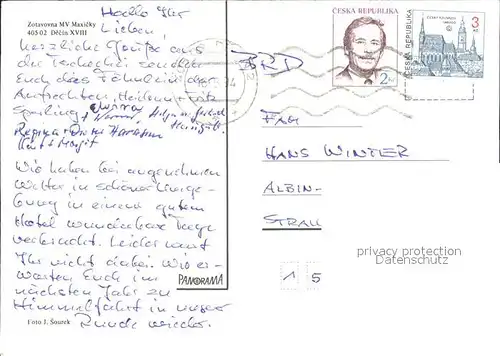 Zotavovna MV Maxičky
40502 Děčín XVIII
Hallo Ihr
Lieben!
Herzliche Grüße aus
der Tschechei senden
Euch das Fähnlein der
Aufrechten, Heidrun + Lutz
Regina + Dieter
Kurt + Margit
Wir haben bei angenehmen
Wetter in schöner Umge-
bung in einem guten
Hotel wunderbare Tage
verbracht. Leider wart
Ihr nicht dabei. Wir er-
warten Euch im
nächsten Jahr zu
Himmelfahrt in unser
Runde wieder.
Foto J. Šourek
PANORAMA
BRD
ČESKÁ REPUBLIKA
2
ČESKÁ REPUBLIKA
3
Kčs
FAM
HANS WINTER
ALBIN-
STRAU
privacy protection
Datenschutz
1 5